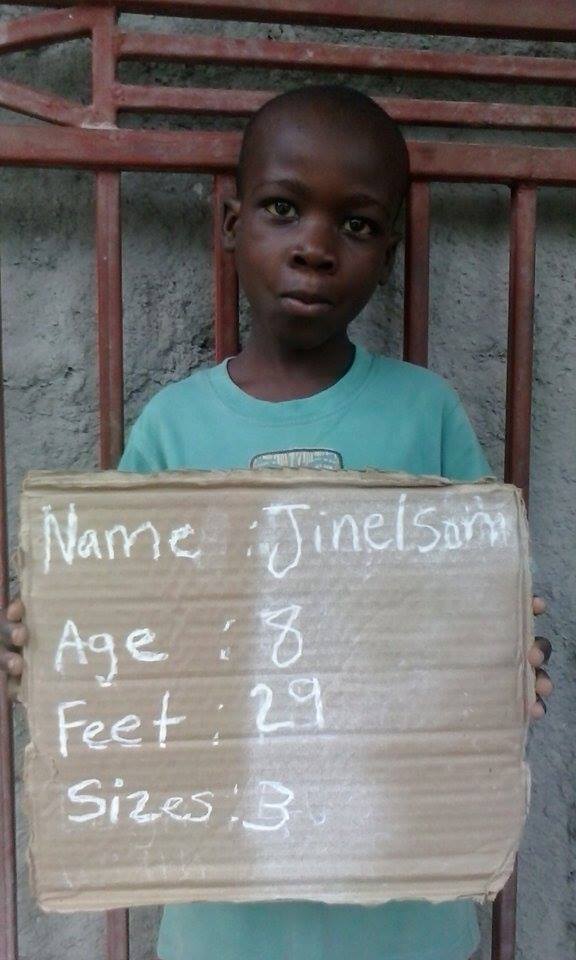 Name : Jinelsom
Age : 8
Feet : 29
Sizes : 3